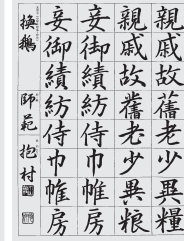 親戚故舊老少異糧
親戚故舊老少異粮
妾御績紡侍巾帷房
妾御績紡侍巾帷房
換鵝 師範 抱村